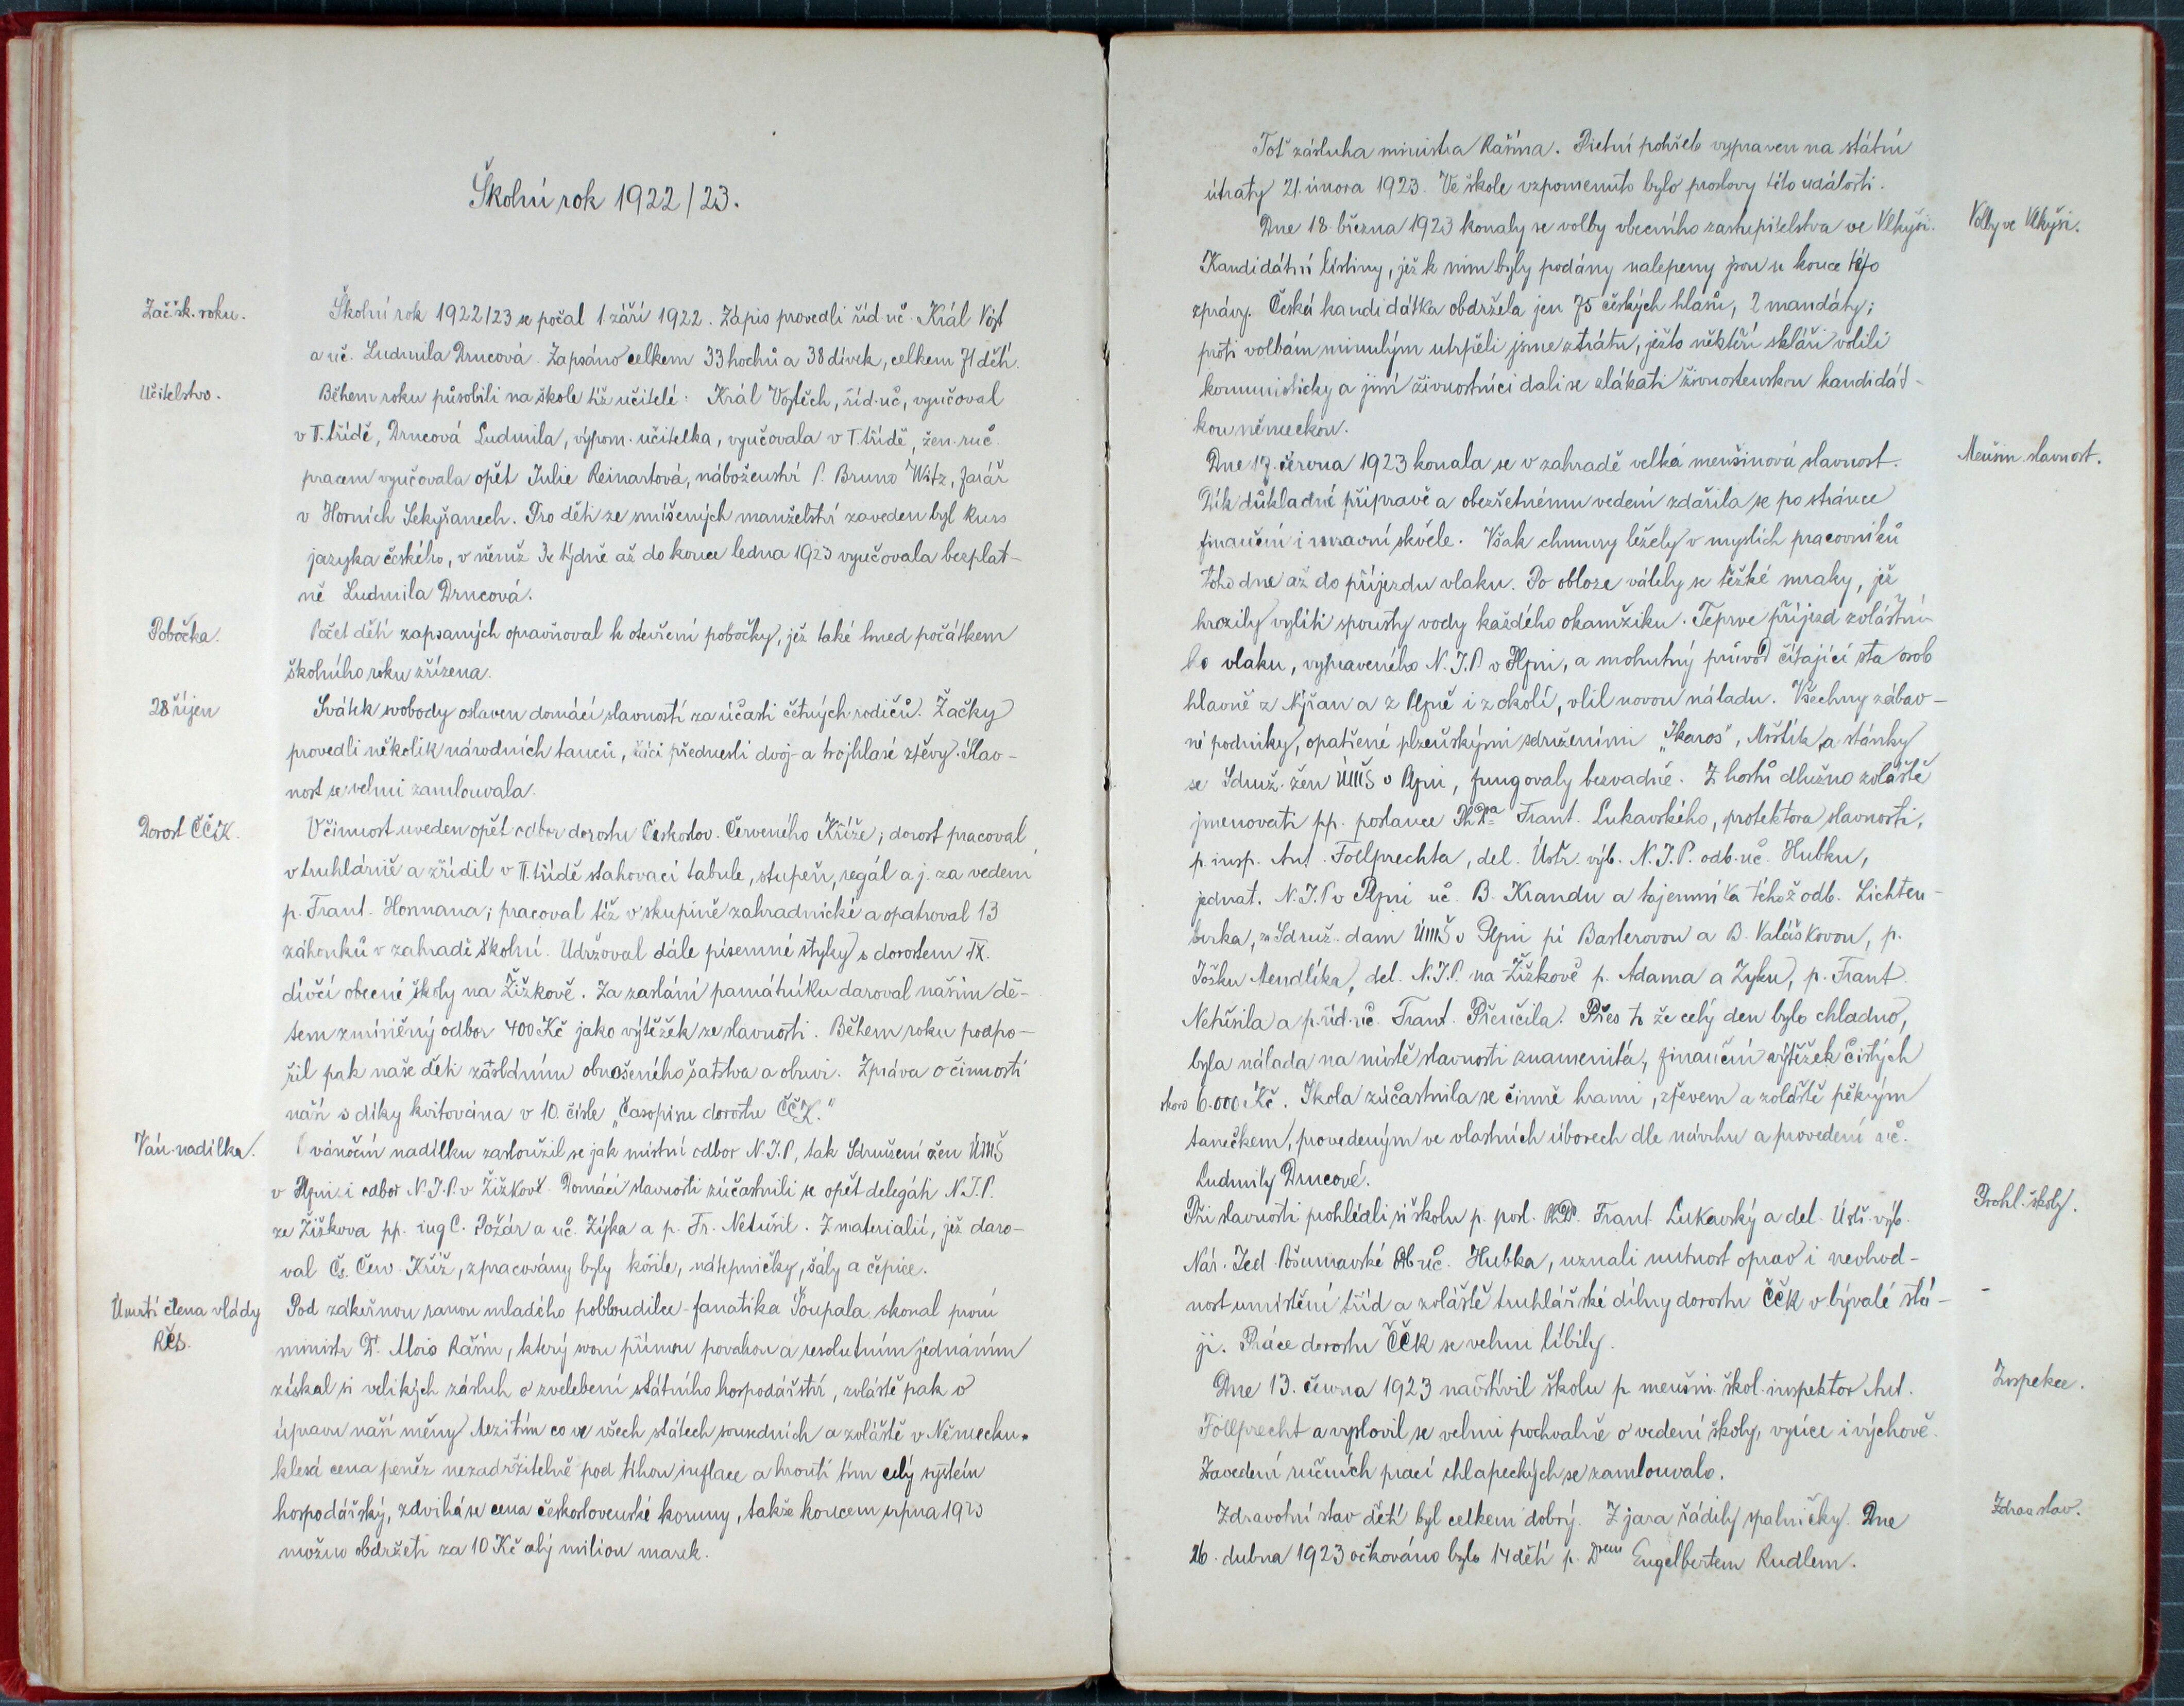 Školní rok 1922/23.
Zač. šk. roku.
Školní rok 1922/23 se počal 1. září 1922. Zápis provedli říd. uč. Král Vojt.
a uč. Ludmila Drncová. Zapsáno celkem 33 hochů a 38 dívek, celkem 71 dětí.
Učitelstvo.
Během roku působili na škole tíž učitelé: Král Vojtěch, říd. uč., vyučoval
v II. třídě, Drncová Ludmila, výpom. učitelka, vyučovala v I. třídě, žen. ruč.
pracem vyučovala opět Julie Reinartová, náboženství P. Bruno Witz, farář
v Horních Sekyřanech. Pro děti ze smíšených manželství zaveden byl kurs
jazyka českého, v němž 3x týdně až do konce ledna 1923 vyučovala bezplat-
ně Ludmila Drncová.
Pobočka.
Počet dětí zapsaných opravňoval k otevření pobočky, jež také hned počátkem
školního roku zřízena.
28 říjen
Svátek svobody oslaven domácí slavností za účasti četných rodičů. Žačky
provedli několik národních tanců, žáci přednesli dvoj- a trojhlasé zpěvy. Slav-
nost se velmi zamlouvala.
Dorost ČČK.
V činnost uveden opět odbor dorostu Českoslov. Červeného Kříže; dorost pracoval
v truhlárně a zřídil v II. třídě stahovací tabule, stupeň, regál a j. za vedení
p. Frant. Hosmana; pracoval též v skupině zahradnické a opatroval 13
záhonků v zahradě školní. Udržoval dále písemné styky s dorostem IX.
dívčí obecné školy na Žižkově. Za zaslání památníku daroval našim dě-
tem zmíněný odbor 400 Kč jako výtěžek ze slavnosti. Během roku podpo-
řil pak naše děti zasláním obnošeného šatstva a obuvi. Zpráva o činnosti
naší s díky kvitována v 10. čísle „Časopisu dorostu ČČK."
Ván. nadílka.
O vánoční nadílku zasloužil se jak místní odbor N.J.P., tak Sdružení žen ÚMŠ
v Plzni i odbor N.J.P. v Žižkově. Domácí slavnosti zúčastnili se opět delegáti N.J.P.
ze Žižkova pp. ing C. Požár a uč. Zýka a p. Fr. Netušil. Z materialií, jež daro-
val Čs. Červ. Kříž, zpracovány byly košile, nátepničky, šály a čepice.
Úmrtí člena vlády
RČS.
Pod zákeřnou ranou mladého pobloudilce-fanatika Šoupala skonal první
ministr Dr. Alois Rašín, který svou přímou povahou a resolutním jednáním
získal si velikých zásluh o zvelebení státního hospodářství, zvláště pak o
úpravu naší měny. Mezitím co ve všech státech sousedních a zvláště v Německu
klesá cena peněz nezadržitelně pod tíhou inflace a hroutí tím celý systém
hospodářský, zdvihá se cena československé koruny, takže koncem srpna 1923
možno obdržeti za 10 Kč celý milion marek.
Toť zásluha ministra Rašína. Pietní pohřeb vypraven na státní
útraty 21. února 1923. Ve škole vzpomenuto bylo proslovy této události.
Volby ve Vlkýši.
Dne 18. března 1923 konaly se volby obecního zastupitelstva ve Vlkýši.
Kandidátní listiny, jež k nim byly podány nalepeny jsou u konce této
zprávy. Česká kandidátka obdržela jen 75 českých hlasů, 2 mandáty;
proti volbám minulým utrpěli jsme ztrátu, ježto někteří skláři volili
komunisticky a jiní živnostníci dali se zlákati živnostenskou kandidát-
kou německou.
Menšin. slavnost.
Dne 17. června 1923 konala se v zahradě velká menšinová slavnost.
Dík důkladné přípravě a obezřetnému vedení zdařila se po stránce
finanční i mravní skvěle. Však chmury ležely v myslích pracovníků
toho dne až do příjezdu vlaku. Po obloze válely se těžké mraky, jež
hrozily vylíti spousty vody každého okamžiku. Teprve příjezd zvláštní-
ho vlaku, vypraveného N.J.P. v Plzni, a mohutný průvod čítající sta osob
hlavně z Nýřan a z Plzně i z okolí, vlil novou náladu. Všechny zábav-
né podniky, opatřené plzeňskými sdruženími „Ikaros", Mrštík a stánky
se Sdruž. žen ÚMŠ v Plzni, fungovaly bezvadně. Z hostů dlužno zvláště
jmenovati pp. poslance PhDra Frant. Lukavského, protektora slavnosti,
p. insp. Ant. Follprechta, del. Ústř. výb. N.J.P. odb. uč. Hubku,
jednat. N.J.P v Plzni uč. B. Krandu a tajemníka téhož odb. Lichten-
berka, za Sdruž. dam ÚMŠ v Plzni pí Baslerovou a B. Valáškovou, p.
Jošku Mendlíka, del. N.J.P. na Žižkově p. Adama a Zyku, p. Frant.
Netušila a p. říd. uč. Frant. Přeučila. Přes to že celý den bylo chladno,
byla nálada na místě slavnosti znamenitá, finanční výtěžek čistých
skoro 6.000 Kč. Škola zúčastnila se činně hrami, zpěvem a zvláště pěkným
tanečkem, provedeným ve vlastních úborech dle návrhu a provedení uč.
Ludmily Drncové.
Prohl. školy.
Při slavnosti prohlédli si školu p. posl. PhDr. Frant. Lukavský a del. Ústř. výb.
Nár. Jed. Pošumavské odb. uč. Hubka, uznali nutnost oprav i nevhod-
nost umístění tříd a zvláště truhlářské dílny dorostu ČČK v bývalé stá-
ji. Práce dorostu ČČK se velmi líbily.
Inspekce.
Dne 13. června 1923 navštívil školu p. menšin. škol. inspektor Ant.
Follprecht a vyslovil se velmi pochvalně o vedení školy, výuce i výchově.
Zavedení ručních prací chlapeckých se zamlouvalo.
Zdrav. stav.
Zdravotní stav dětí byl celkem dobrý. Z jara řádily spalničky. Dne
26. dubna 1923 očkováno bylo 14 dětí p. Drem Engelbertem Rudlem.